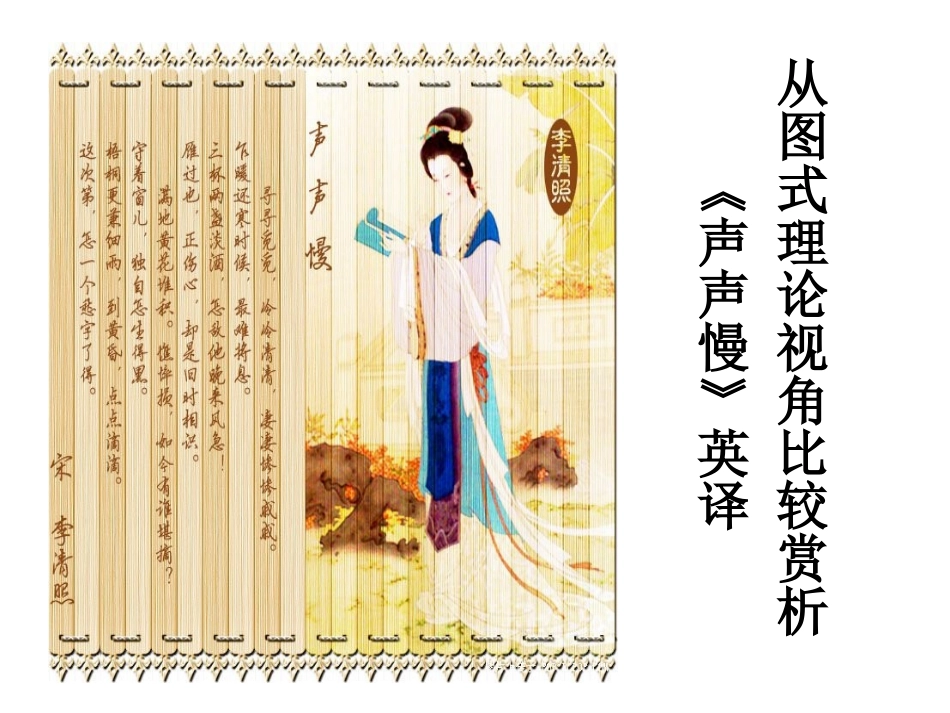 从图式理论视角比较赏析
《声声慢》英译
李清照
声声慢
寻寻觅觅，冷冷清清，凄凄惨惨戚戚。
乍暖还寒时候，最难将息。
三杯两盏淡酒，怎敌他晚来风急！
雁过也，正伤心，却是旧时相识。
满地黄花堆积。憔悴损，如今有谁堪摘？
守着窗儿，独自怎生得黑。
梧桐更兼细雨，到黄昏，点点滴滴。
这次第，怎一个愁字了得。
宋 李清照